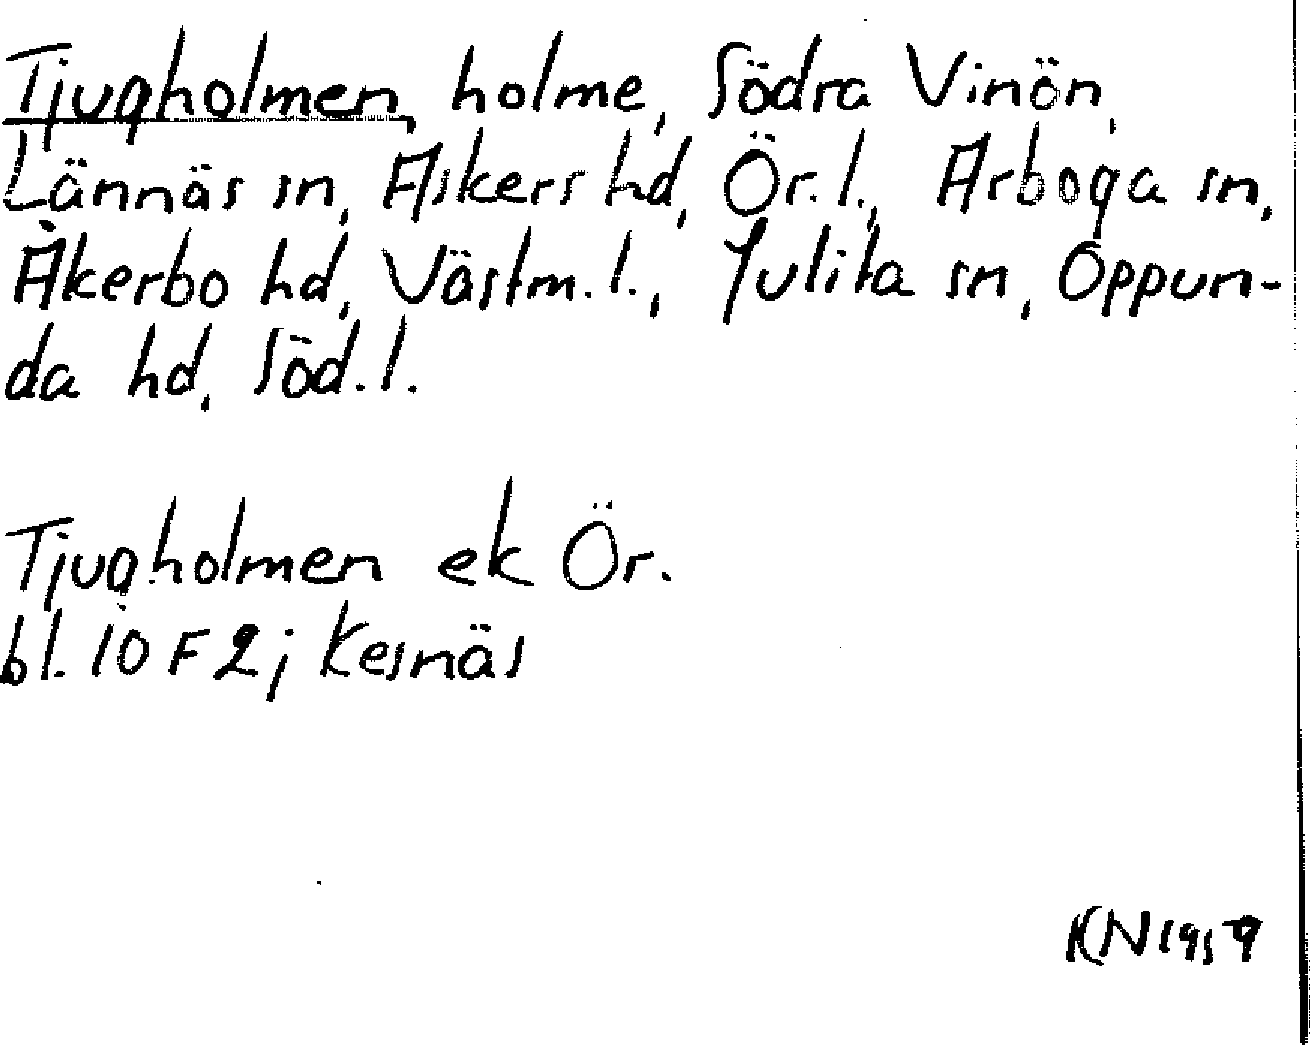 Tjugholmen, holme, Södra Vinön,
Lännäs sn, Askers hd, Ör. l., Arboga sn,
Åkerbo hd, Västm. l., Julita sn, Oppun-
da hd, Söd. l.
Tjugholmen ek Ör.
bl. 10 F 2; Kesnäs
KN 1959